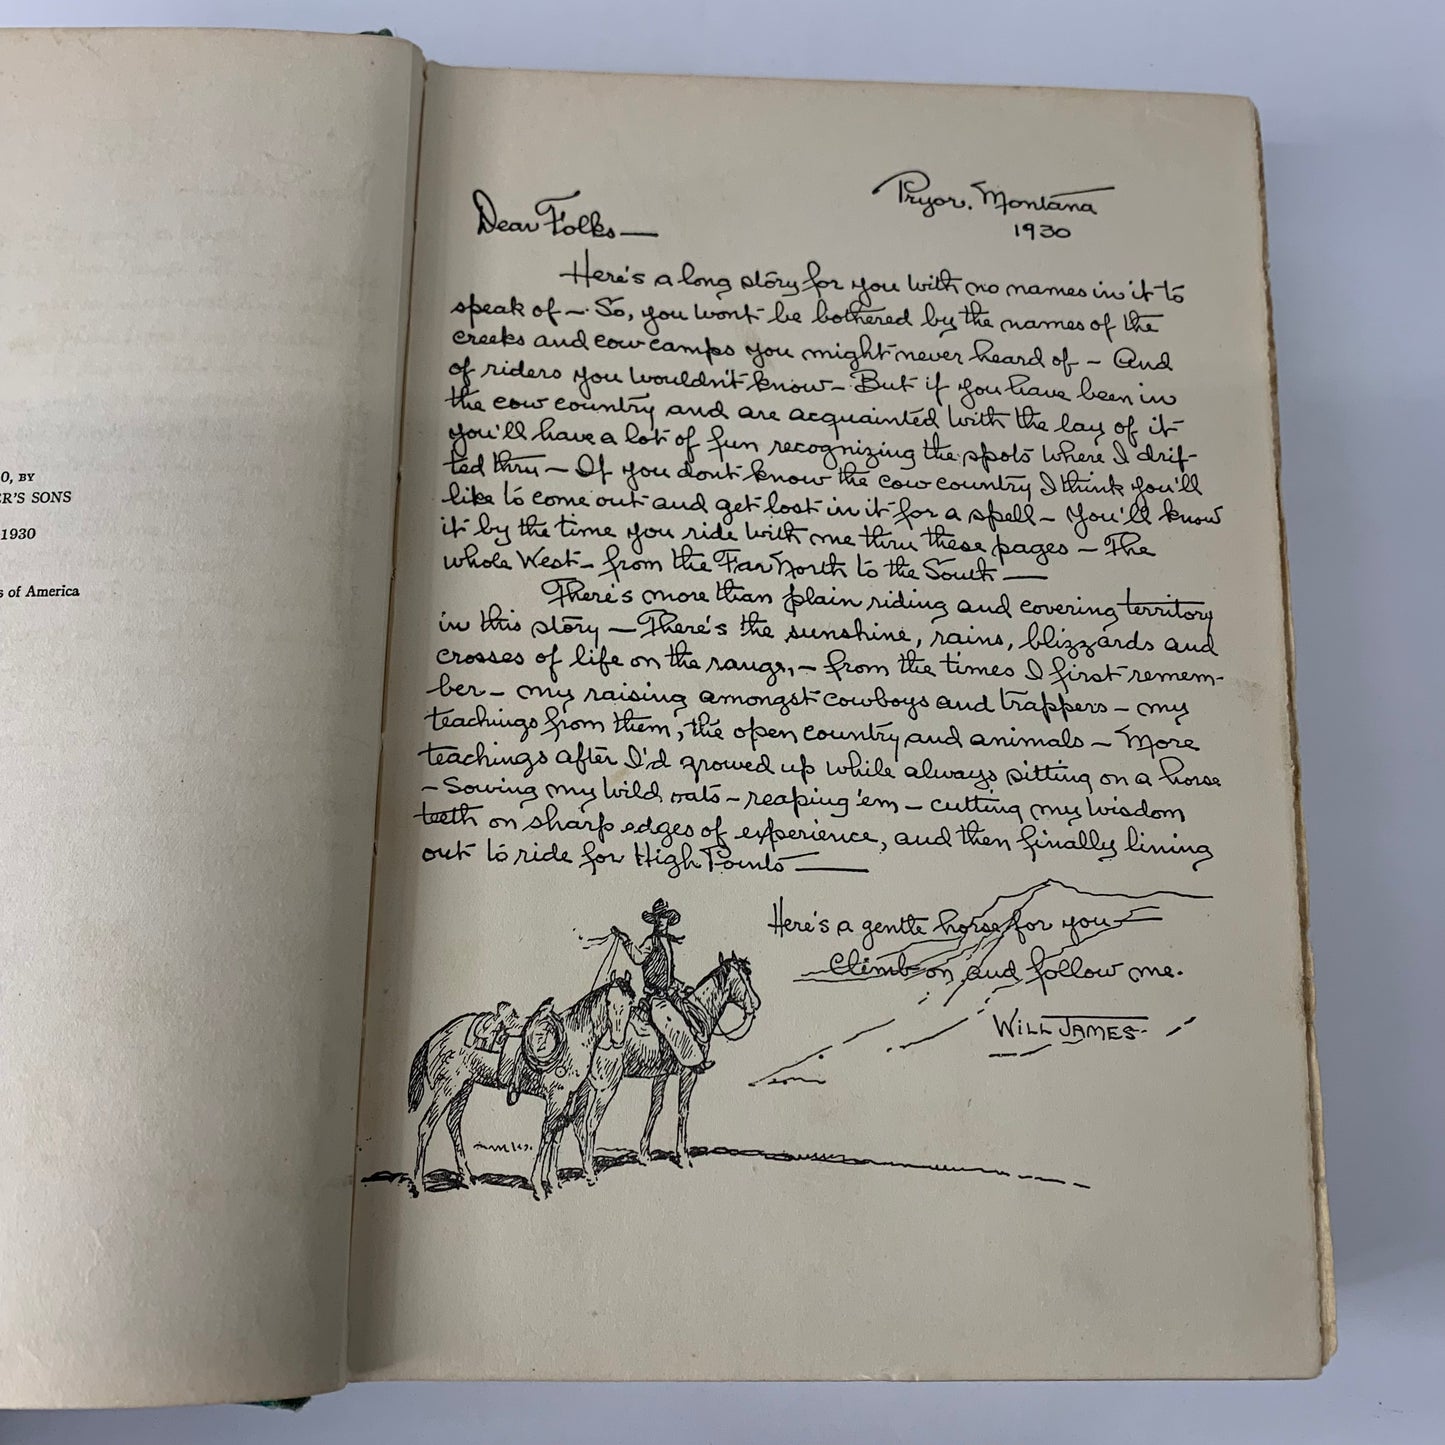 0, BY
ER'S SONS
1930
s of America
Pryor, Montana
1930
Dear Folks—
Here's a long story for you with no names in it to
speak of — So, you wont be bothered by the names of the
creeks and cow camps you might never heard of — And
of riders you wouldn't know — But if you have been in
the cow country and are acquainted with the lay of it
you'll have a lot of fun recognizing the spots where I drif-
ted thru — If you dont know the cow country I think you'll
like to come out and get lost in it for a spell — You'll know
it by the time you ride with me thru these pages — The
whole West — from the Far North to the South —
There's more than plain riding and covering territory
in this story — There's the sunshine, rains, blizzards and
crosses of life on the range, — from the times I first remem-
ber — my raising amongst cowboys and trappers — my
teachings from them, the open country and animals — More
teachings after I'd growed up while always sitting on a horse
— Sowing my wild oats — reaping 'em — cutting my wisdom
teeth on sharp edges of experience, and then finally lining
out to ride for High Points —
Here's a gentle horse for you
Climb on and follow me.
WILL JAMES-